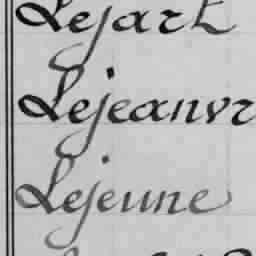 Lejart
Lejeanvr
Lejeune